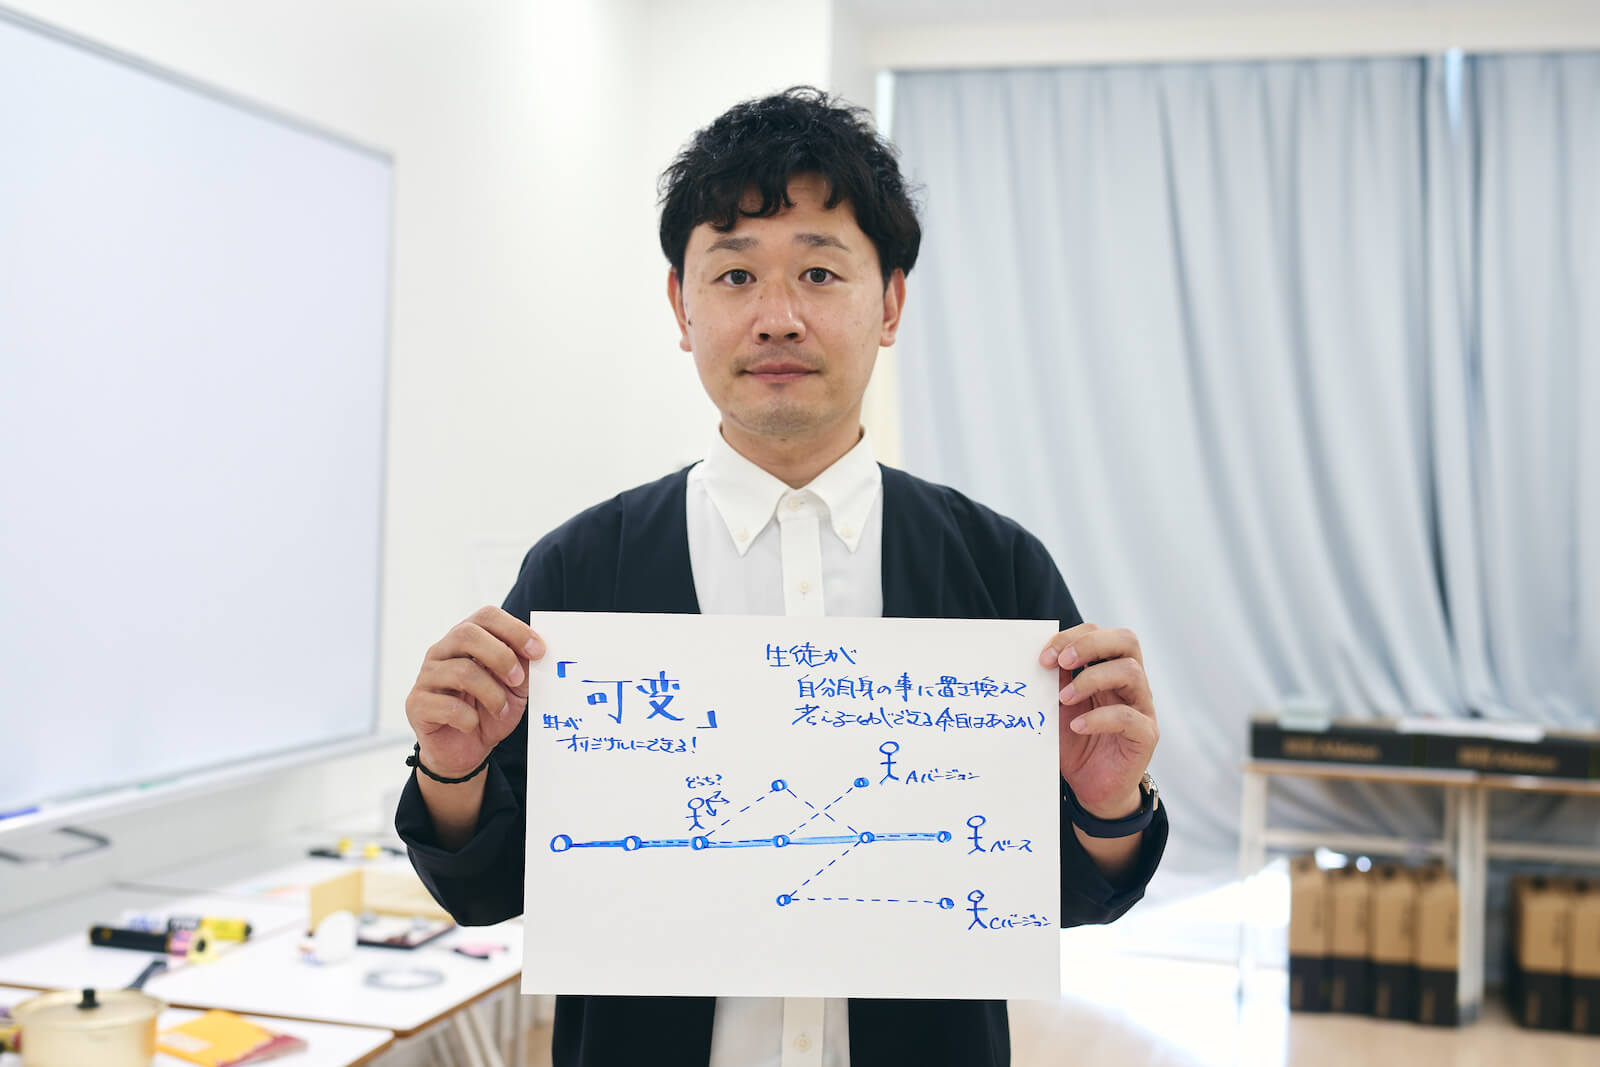 「可変」
生徒が
オリジナルにできる!
生徒が
自分自身の事に置き換えて
考えることができる余白はあるか?
どっち?
Aバージョン
ベース
Cバージョン